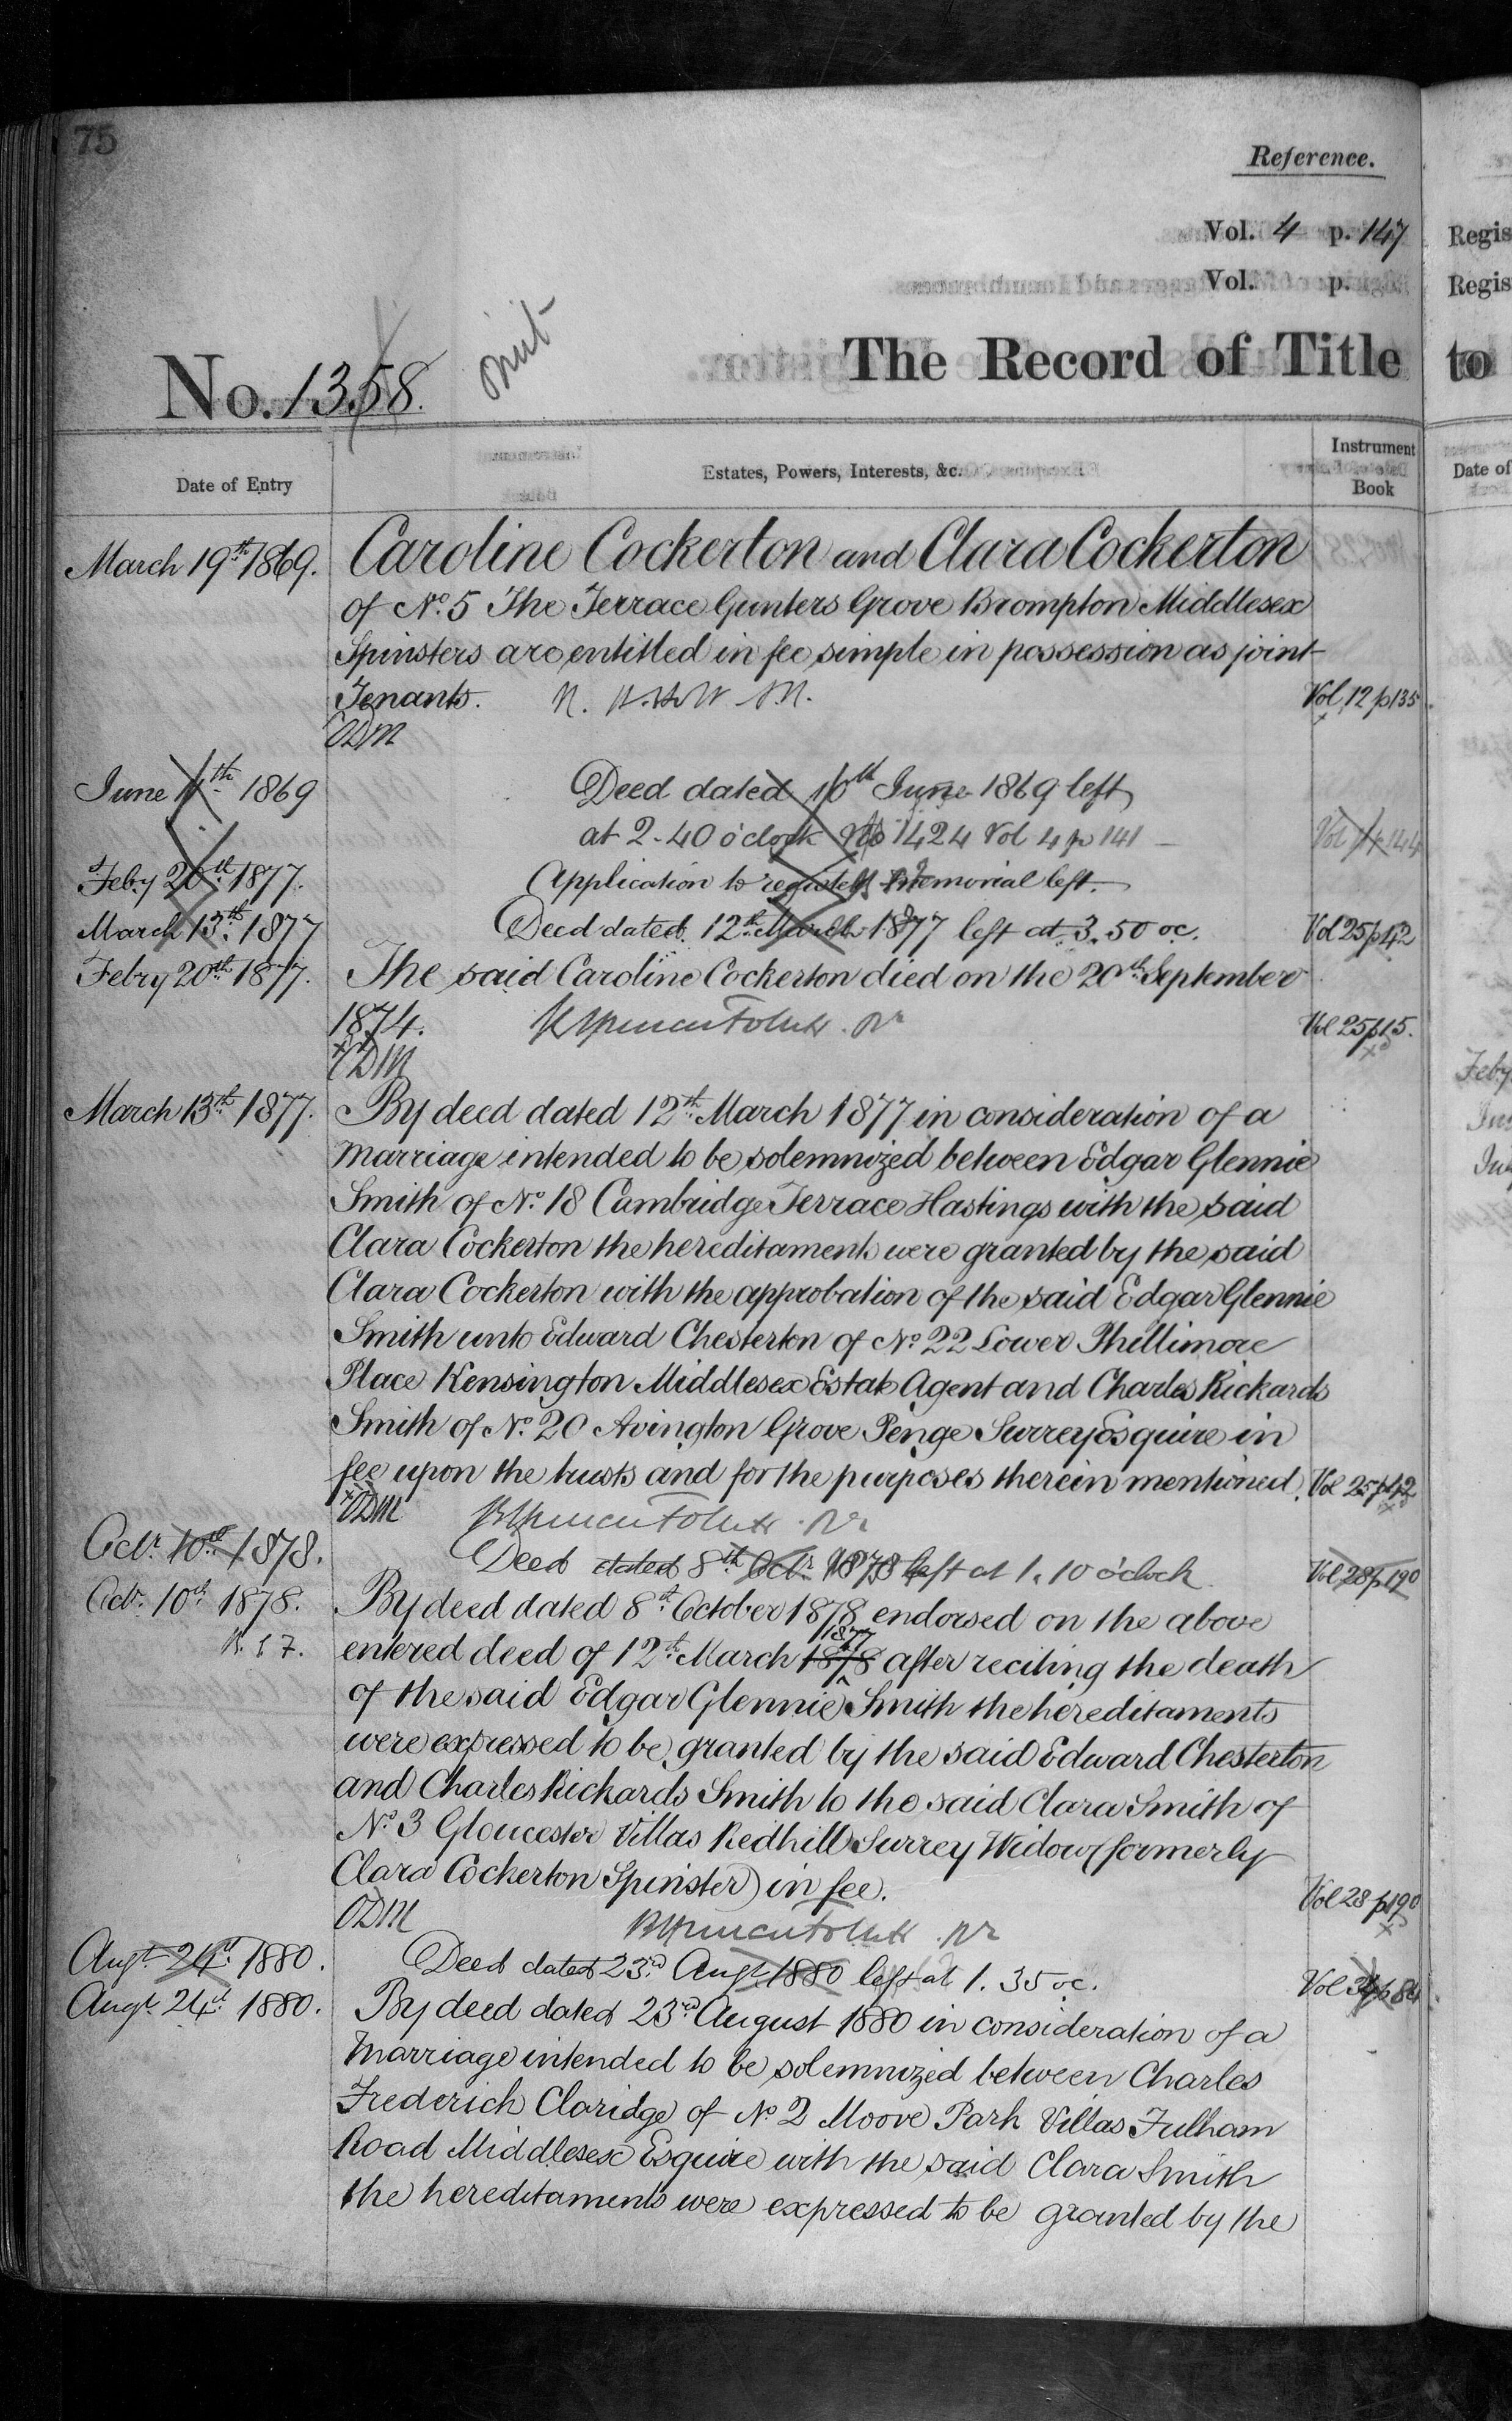 75
Reference.
Vol. 4 p. 147
Vol. p.
No. 1358. omit
The Record of Title
Date of Entry
Estates, Powers, Interests, &c.
Instrument Book
March 19th 1869. Caroline Cockerton and Clara Cockerton
of No. 5 The Terrace Gunters Grove Brompton Middlesex
Spinsters are entitled in fee simple in possession as joint
Tenants. Vol 12 p 135
ODM
June 11th 1869 Deed dated 10th June 1869 left
at 2-40 o'clock No 1424 Vol 4 p 141 Vol 14 p 144
Feby 20th 1877. Application to register Memorial left.
March 13th 1877 Deed dated 12th March 1877 left at 3.50 oc. Vol 25 p 42
Febry 20th 1877. The said Caroline Cockerton died on the 20th September
1874. Vol 25 p 15.
ODM
March 13th 1877. By deed dated 12th March 1877 in consideration of a
marriage intended to be solemnized between Edgar Glennie
Smith of No. 18 Cambridge Terrace Hastings with the said
Clara Cockerton the hereditaments were granted by the said
Clara Cockerton with the approbation of the said Edgar Glennie
Smith unto Edward Chesterton of No 22 Lower Phillimore
Place Kensington Middlesex Estate Agent and Charles Rickards
Smith of No. 20 Avington Grove Penge Surrey Esquire in
fee upon the trusts and for the purposes therein mentioned. Vol 25 p 42
ODM
Octr. 10th 1878. Deed dated 8th Octr. 1878 left at 1.10 o'clock Vol 28 p 190
Octr. 10th 1878. By deed dated 8th October 1878 endorsed on the above
entered deed of 12th March 1878 1877 after reciting the death
of the said Edgar Glennie Smith the hereditaments
were expressed to be granted by the said Edward Chesterton
and Charles Rickards Smith to the said Clara Smith of
No. 3 Gloucester Villas Redhill Surrey Widow (formerly
Clara Cockerton Spinster) in fee. Vol 28 p 190
ODM
Augt. 24th 1880. Deed dated 23rd Augt. 1880 left at 1.35 oc. Vol 34 p 84
Augt. 24th 1880. By deed dated 23rd August 1880 in consideration of a
Marriage intended to be solemnized between Charles
Frederick Claridge of No 2 Moore Park Villas Fulham
Road Middlesex Esquire with the said Clara Smith
the hereditaments were expressed to be granted by the
Regis
Regis
to
Date of
Feby